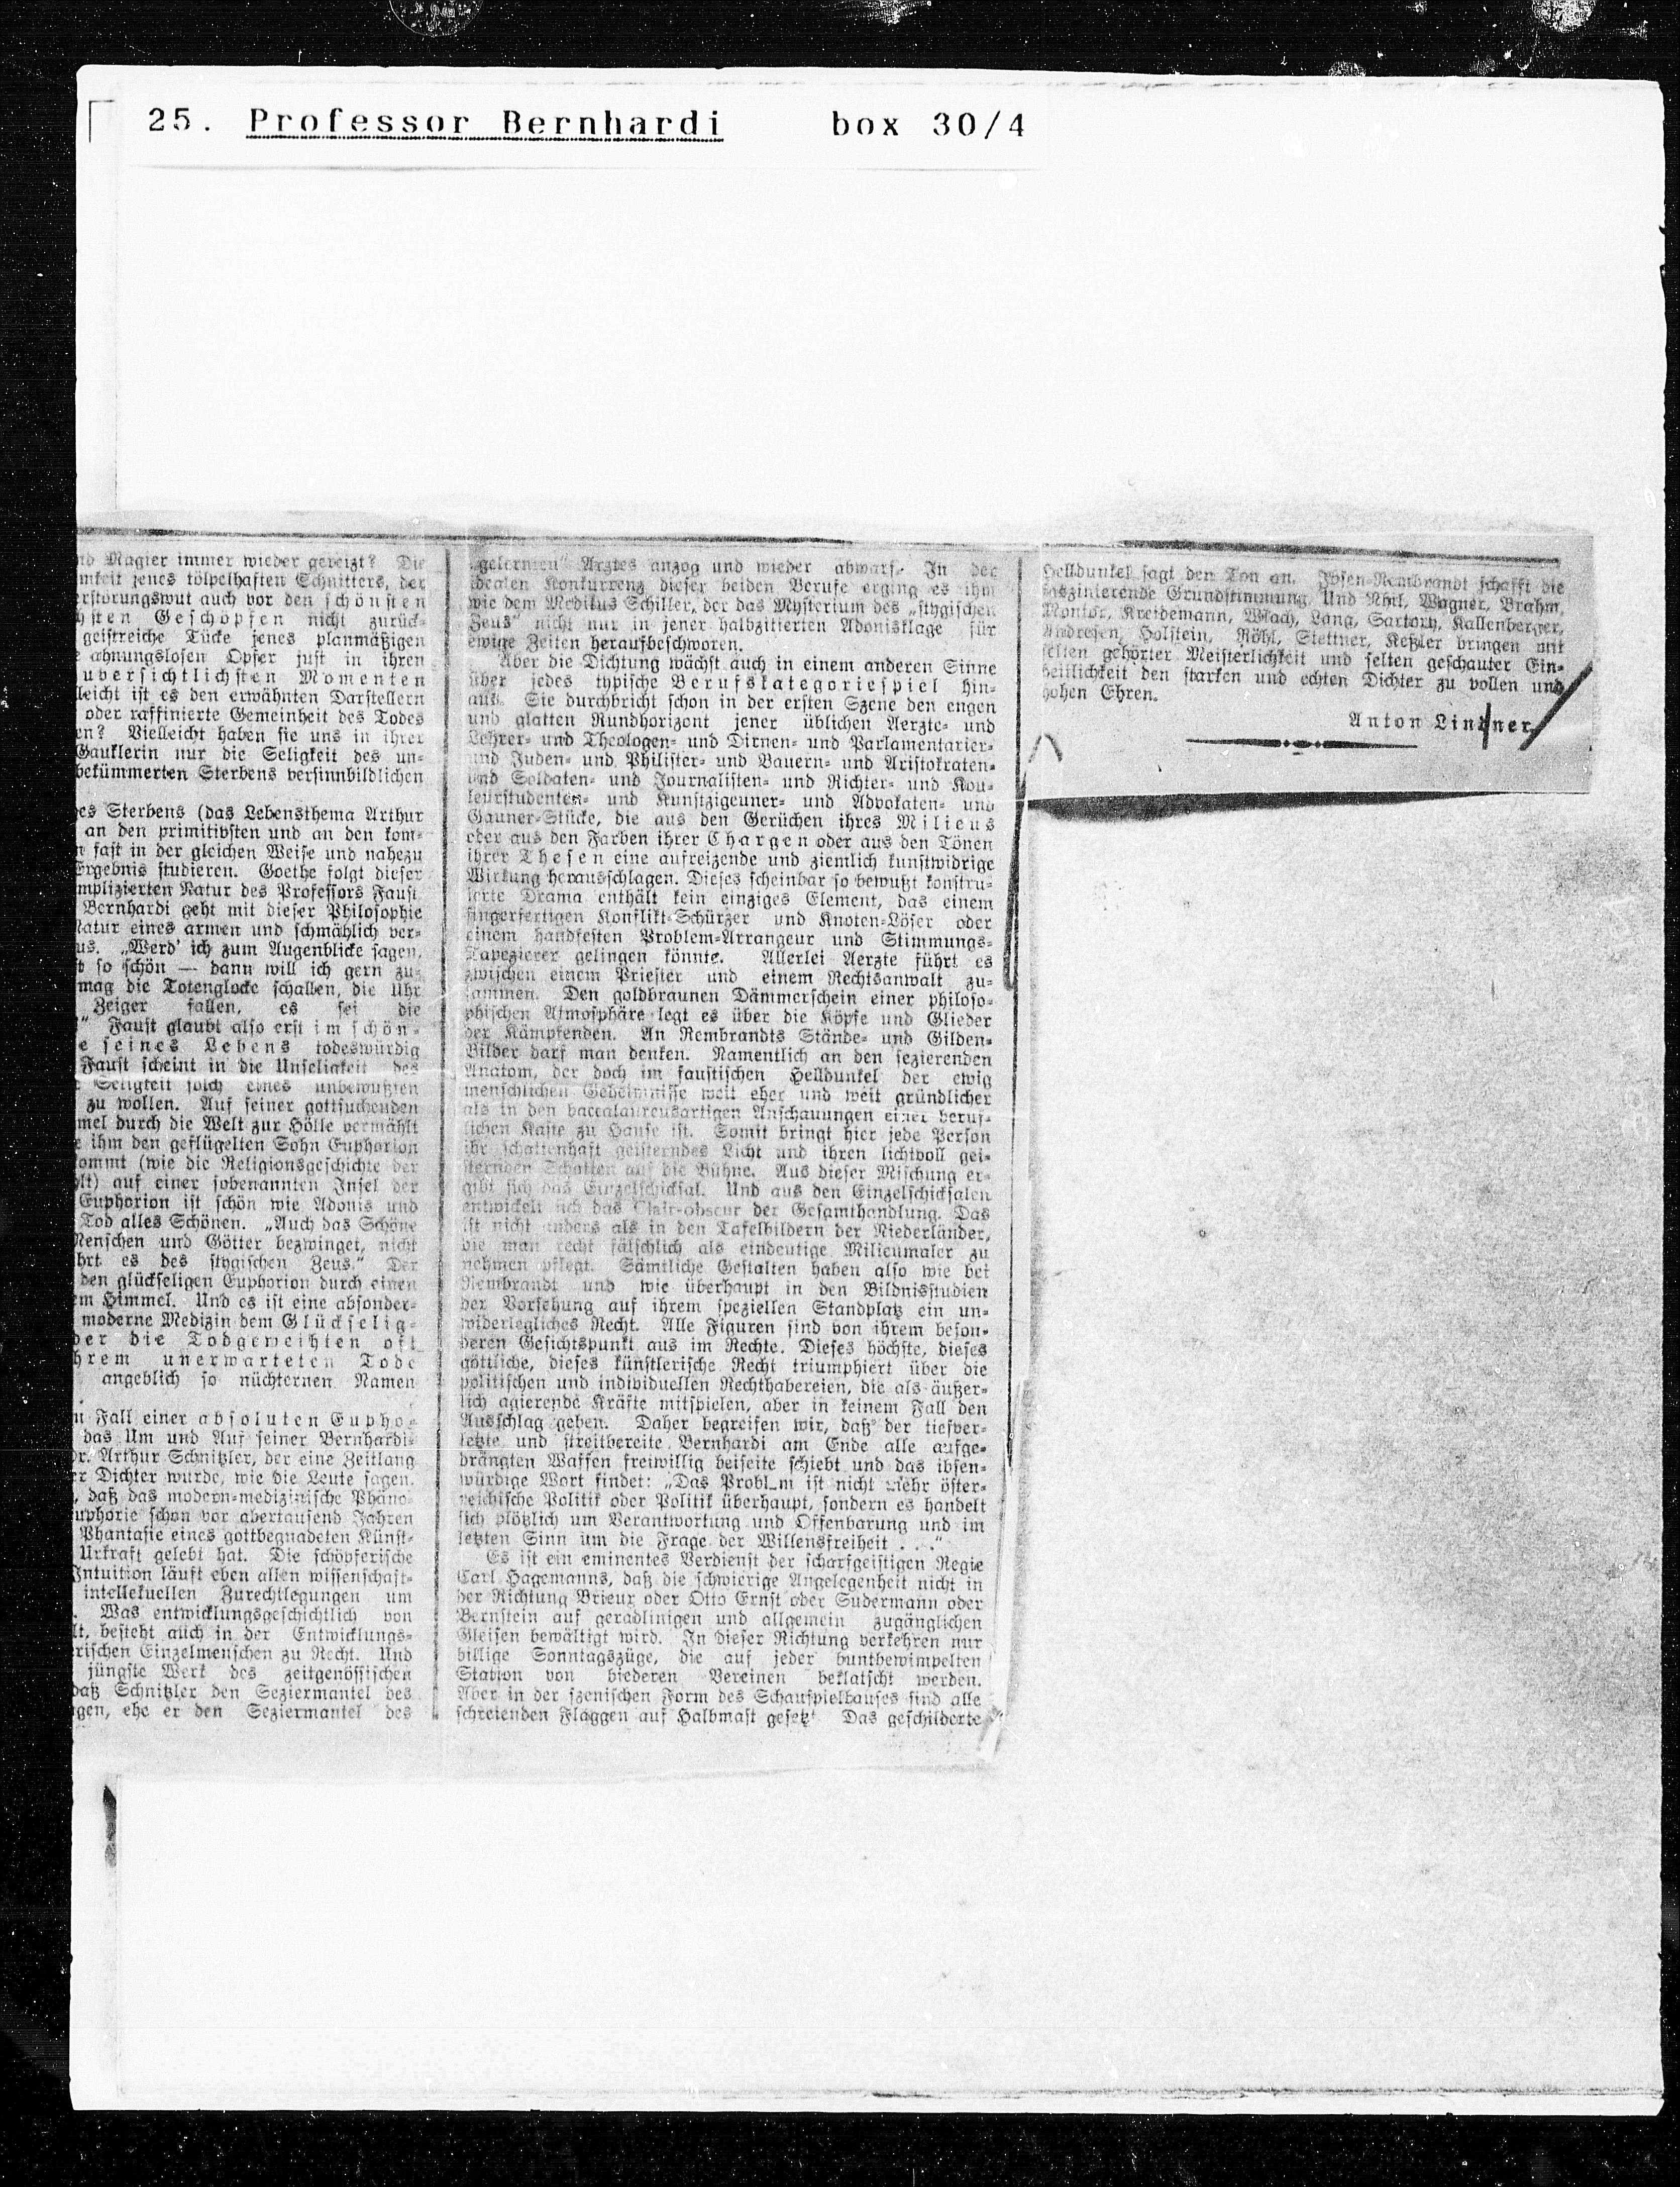 25. Professor Bernhardi box 30/4
Magier immer wieder gereizt? Die
jenes tölpelhaften Schnitters, der
auch vor den schönsten
Geschöpfen nicht zurück-
geistreiche Tücke jenes planmäßigen
ahnungslosen Opfer just in ihren
übersichtlichsten Momenten
ist es den erwähnten Darstellern
oder raffinierte Gemeinheit des Todes
Vielleicht haben sie uns in ihrer
Gauklerin nur die Seligkeit des un-
bekümmerten Sterbens versinnbildlichen
Sterbens (das Lebensthema Arthur
an den primitivsten und an den kom-
fast in der gleichen Weise und nahezu
Ergebnis studieren. Goethe folgt dieser
Natur des Professors Faust
Bernhardi geht mit dieser Philosophie
Natur eines armen und schmählich ver-
„Werd' ich zum Augenblicke sagen,
so schön — dann will ich gern zu-
mag die Totenglocke schallen, die Uhr
Zeiger fallen, es sei die
“ Faust glaubt also erst im schön-
seines Lebens todeswürdig
Faust scheint in die Unseligkeit des
Seligkeit solch eines unbewußten
zu wollen. Auf seiner gottsuchenden
durch die Welt zur Hölle vermählt
ihm den geflügelten Sohn Euphorion
(wie die Religionsgeschichte der
auf einer sobenannten Insel der
Euphorion ist schön wie Adonis und
Tod alles Schönen. „Auch das Schöne
Menschen und Götter bezwinget, nicht
es des stygischen Zeus.“ Der
den glückseligen Euphorion durch einen
Himmel. Und es ist eine absonder-
moderne Medizin dem Glückselig-
die Todgeweihten oft
unerwarteten Tode
angeblich so nüchternen Namen
Fall einer absoluten Eupho-
das Um und Auf seiner Bernhardi-
Arthur Schnitzler, der eine Zeitlang
Dichter wurde, wie die Leute sagen.
daß das modern-medizinische Phäno-
schon vor abertausend Jahren
Phantasie eines gottbegnadeten Künst-
Urkraft gelebt hat. Die schöpferische
Intuition läuft eben allen wissenschaft-
intellektuellen Zurechtlegungen um
Was entwicklungsgeschichtlich von
besteht auch in der Entwicklungs-
Einzelmenschen zu Recht. Und
jüngste Werk des zeitgenössischen
daß Schnitzler den Seziermantel des
ehe er den Seziermantel des
„gelernten“ Arztes anzog und wieder abwarf. In der
idealen Konkurrenz dieser beiden Berufe erging es ihm
wie dem Medikus Schiller, der das Mysterium des „stygischen
Zeus“ nicht nur in jener halbzitierten Adonisklage für
ewige Zeiten heraufbeschworen.
Aber die Dichtung wächst auch in einem anderen Sinne
über jedes typische Berufskategoriespiel hin-
aus. Sie durchbricht schon in der ersten Szene den engen
und glatten Rundhorizont jener üblichen Aerzte- und
Lehrer- und Theologen- und Dirnen- und Parlamentarier-
und Juden- und Philister- und Bauern- und Aristokraten-
und Soldaten- und Journalisten- und Richter- und Kou-
leurstudenten- und Kunstzigeuner- und Advokaten- und
Gauner-Stücke, die aus den Gerüchen ihres Milieus
oder aus den Farben ihrer Chargen oder aus den Tönen
ihrer Thesen eine aufreizende und ziemlich kunstwidrige
Wirkung herausschlagen. Dieses scheinbar so bewußt konstru-
ierte Drama enthält kein einziges Element, das einem
fingerfertigen Konflikt-Schürzer und Knoten-Löser oder
einem handfesten Problem-Arrangeur und Stimmungs-
Tapezierer gelingen könnte. Allerlei Aerzte führt es
zwischen einem Priester und einem Rechtsanwalt zu-
sammen. Den goldbraunen Dämmerschein einer philoso-
phischen Atmosphäre legt es über die Köpfe und Glieder
der Kämpfenden. An Rembrandts Stände- und Gilden-
Bilder darf man denken. Namentlich an den sezierenden
Anatom, der doch im faustischen Helldunkel der ewig
menschlichen Geheimnisse weit eher und weit gründlicher
als in den baccalaureusartigen Anschauungen einer beruf-
lichen Kaste zu Hause ist. Somit bringt hier jede Person
ihr schattenhaft geisterndes Licht und ihren lichtvoll gei-
sternden Schatten auf die Bühne. Aus dieser Mischung er-
gibt sich das Einzelschicksal. Und aus den Einzelschicksalen
entwickelt sich das Clair-obscur der Gesamthandlung. Das
ist nicht anders als in den Tafelbildern der Niederländer,
die man recht fälschlich als eindeutige Milieumaler zu
nehmen pflegt. Sämtliche Gestalten haben also wie bei
Rembrandt und wie überhaupt in den Bildnisstudien
der Vorsehung auf ihrem speziellen Standplatz ein un-
widerlegliches Recht. Alle Figuren sind von ihrem beson-
deren Gesichtspunkt aus im Rechte. Dieses höchste, dieses
göttliche, dieses künstlerische Recht triumphiert über die
politischen und individuellen Rechthabereien, die als äußer-
lich agierende Kräfte mitspielen, aber in keinem Fall den
Ausschlag geben. Daher begreifen wir, daß der tiefver-
letzte und streitbereite Bernhardi am Ende alle aufge-
drängten Waffen freiwillig beiseite schiebt und das ibsen-
würdige Wort findet: „Das Problem ist nicht mehr öster-
reichische Politik oder Politik überhaupt, sondern es handelt
sich plötzlich um Verantwortung und Offenbarung und im
letzten Sinn um die Frage der Willensfreiheit . . .“
Es ist ein eminentes Verdienst der scharfgeistigen Regie
Carl Hagemanns, daß die schwierige Angelegenheit nicht in
der Richtung Brieux oder Otto Ernst oder Sudermann oder
Bernstein auf geradlinigen und allgemein zugänglichen
Gleisen bewältigt wird. In dieser Richtung verkehren nur
billige Sonntagszüge, die auf jeder buntbewimpelten
Station von biederen Vereinen beklatscht werden.
Aber in der szenischen Form des Schauspielhauses sind alle
schreienden Flaggen auf Halbmast gesetzt. Das geschilderte
Helldunkel sagt den Ton an. Ibsen-Rembrandt schafft die
faszinierende Grundstimmung. Und Nhil, Wagner, Brahm,
Montor, Kreidemann, Wlach, Lang, Sartory, Kallenberger,
Andresen, Holstein, Röhl, Stettner, Keßler bringen mit
selten gehörter Meisterlichkeit und selten geschauter Ein-
heitlichkeit den starken und echten Dichter zu vollen und
hohen Ehren.
Anton Lindner.